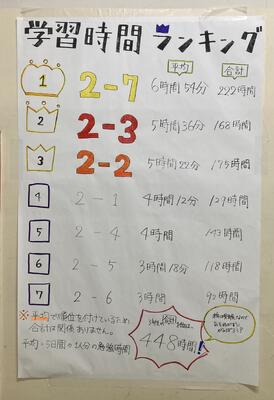 学習時間 ランキング
平均 合計
1 2-7 6時間54分 222時間
2 2-3 5時間36分 168時間
3 2-2 5時間22分 175時間
4 2-1 4時間12分 129時間
5 2-4 4時間 143時間
6 2-5 3時間18分 118時間
7 2-6 3時間 92時間
※平均で順位を付けているため
合計は関係ありません。
448時間!